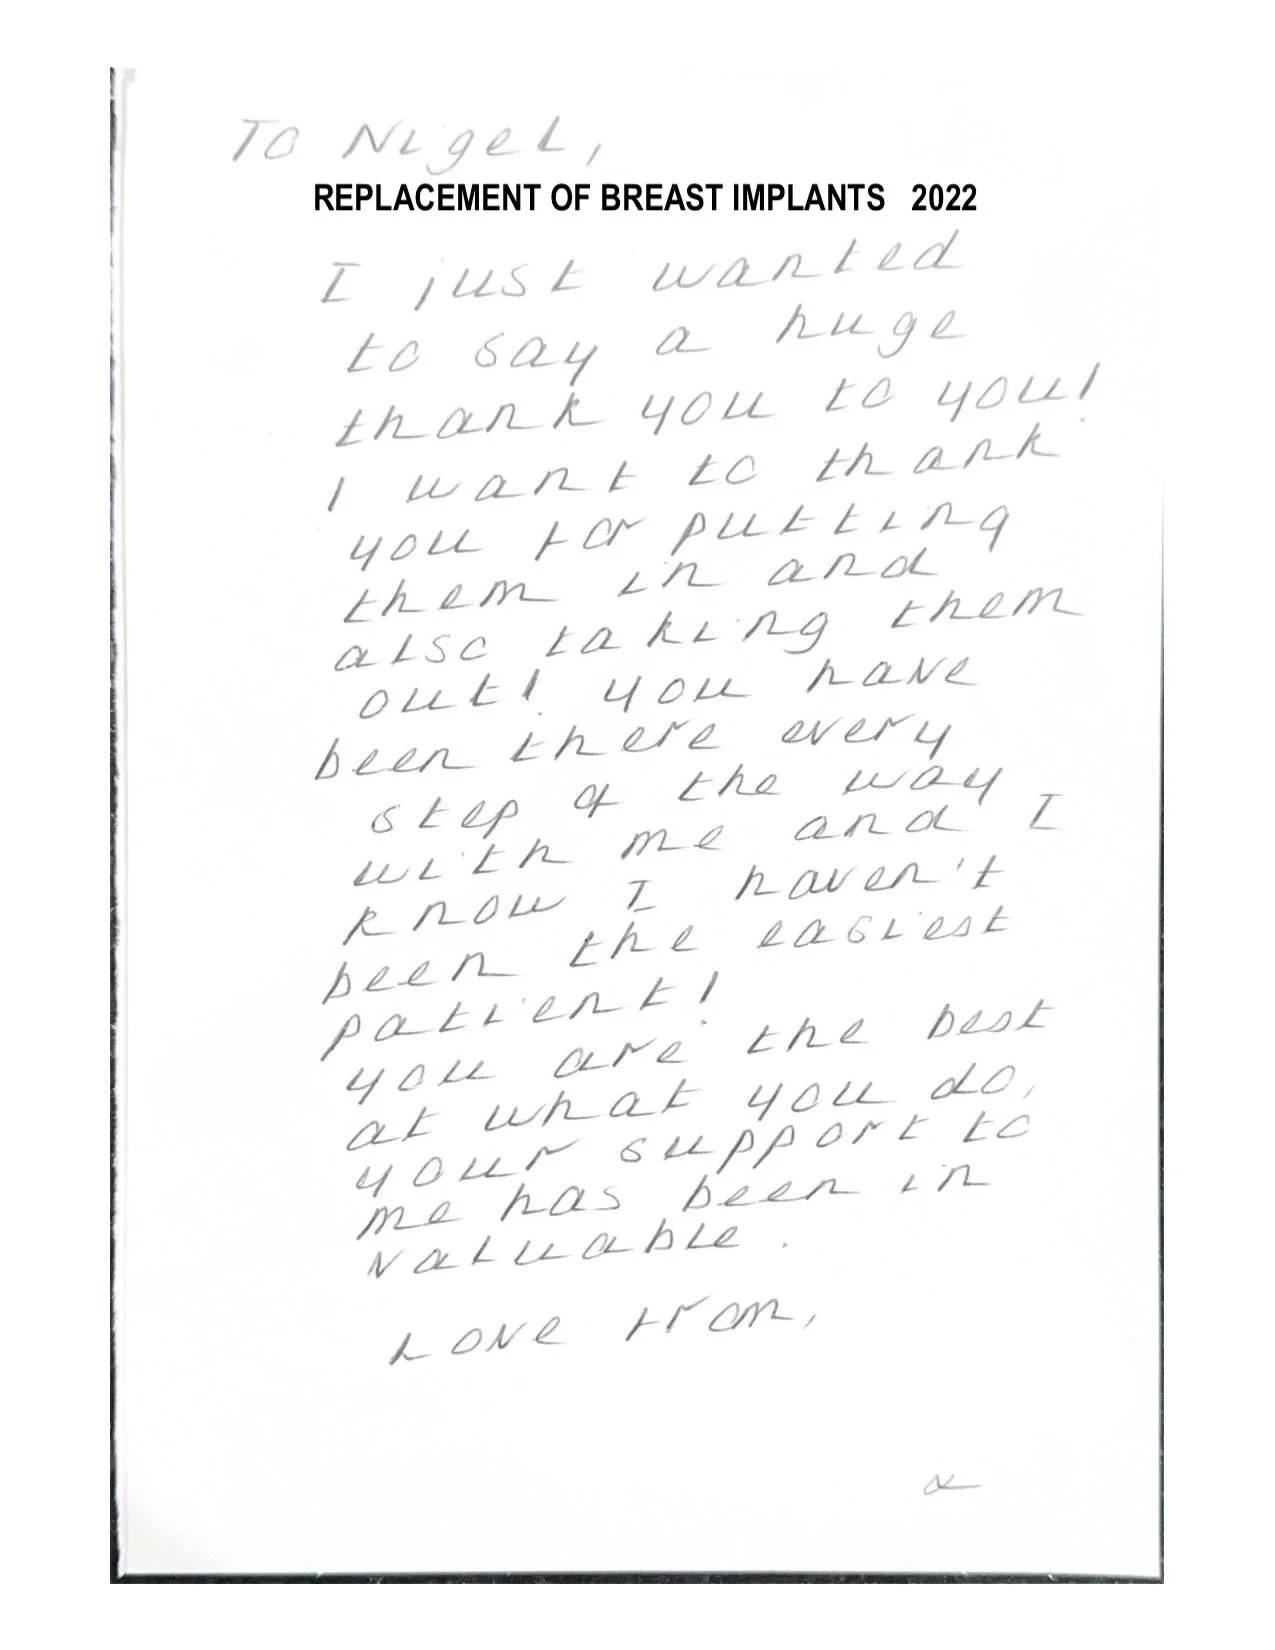 To Nigel,
REPLACEMENT OF BREAST IMPLANTS 2022
I just wanted
to say a huge
thank you to you!
I want to thank
you for putting
them in and
also taking them
out! you have
been there every
step of the way
with me and I
know I haven't
been the easiest
patient!
you are the best
at what you do,
your support to
me has been in
valuable.
Love from,
x